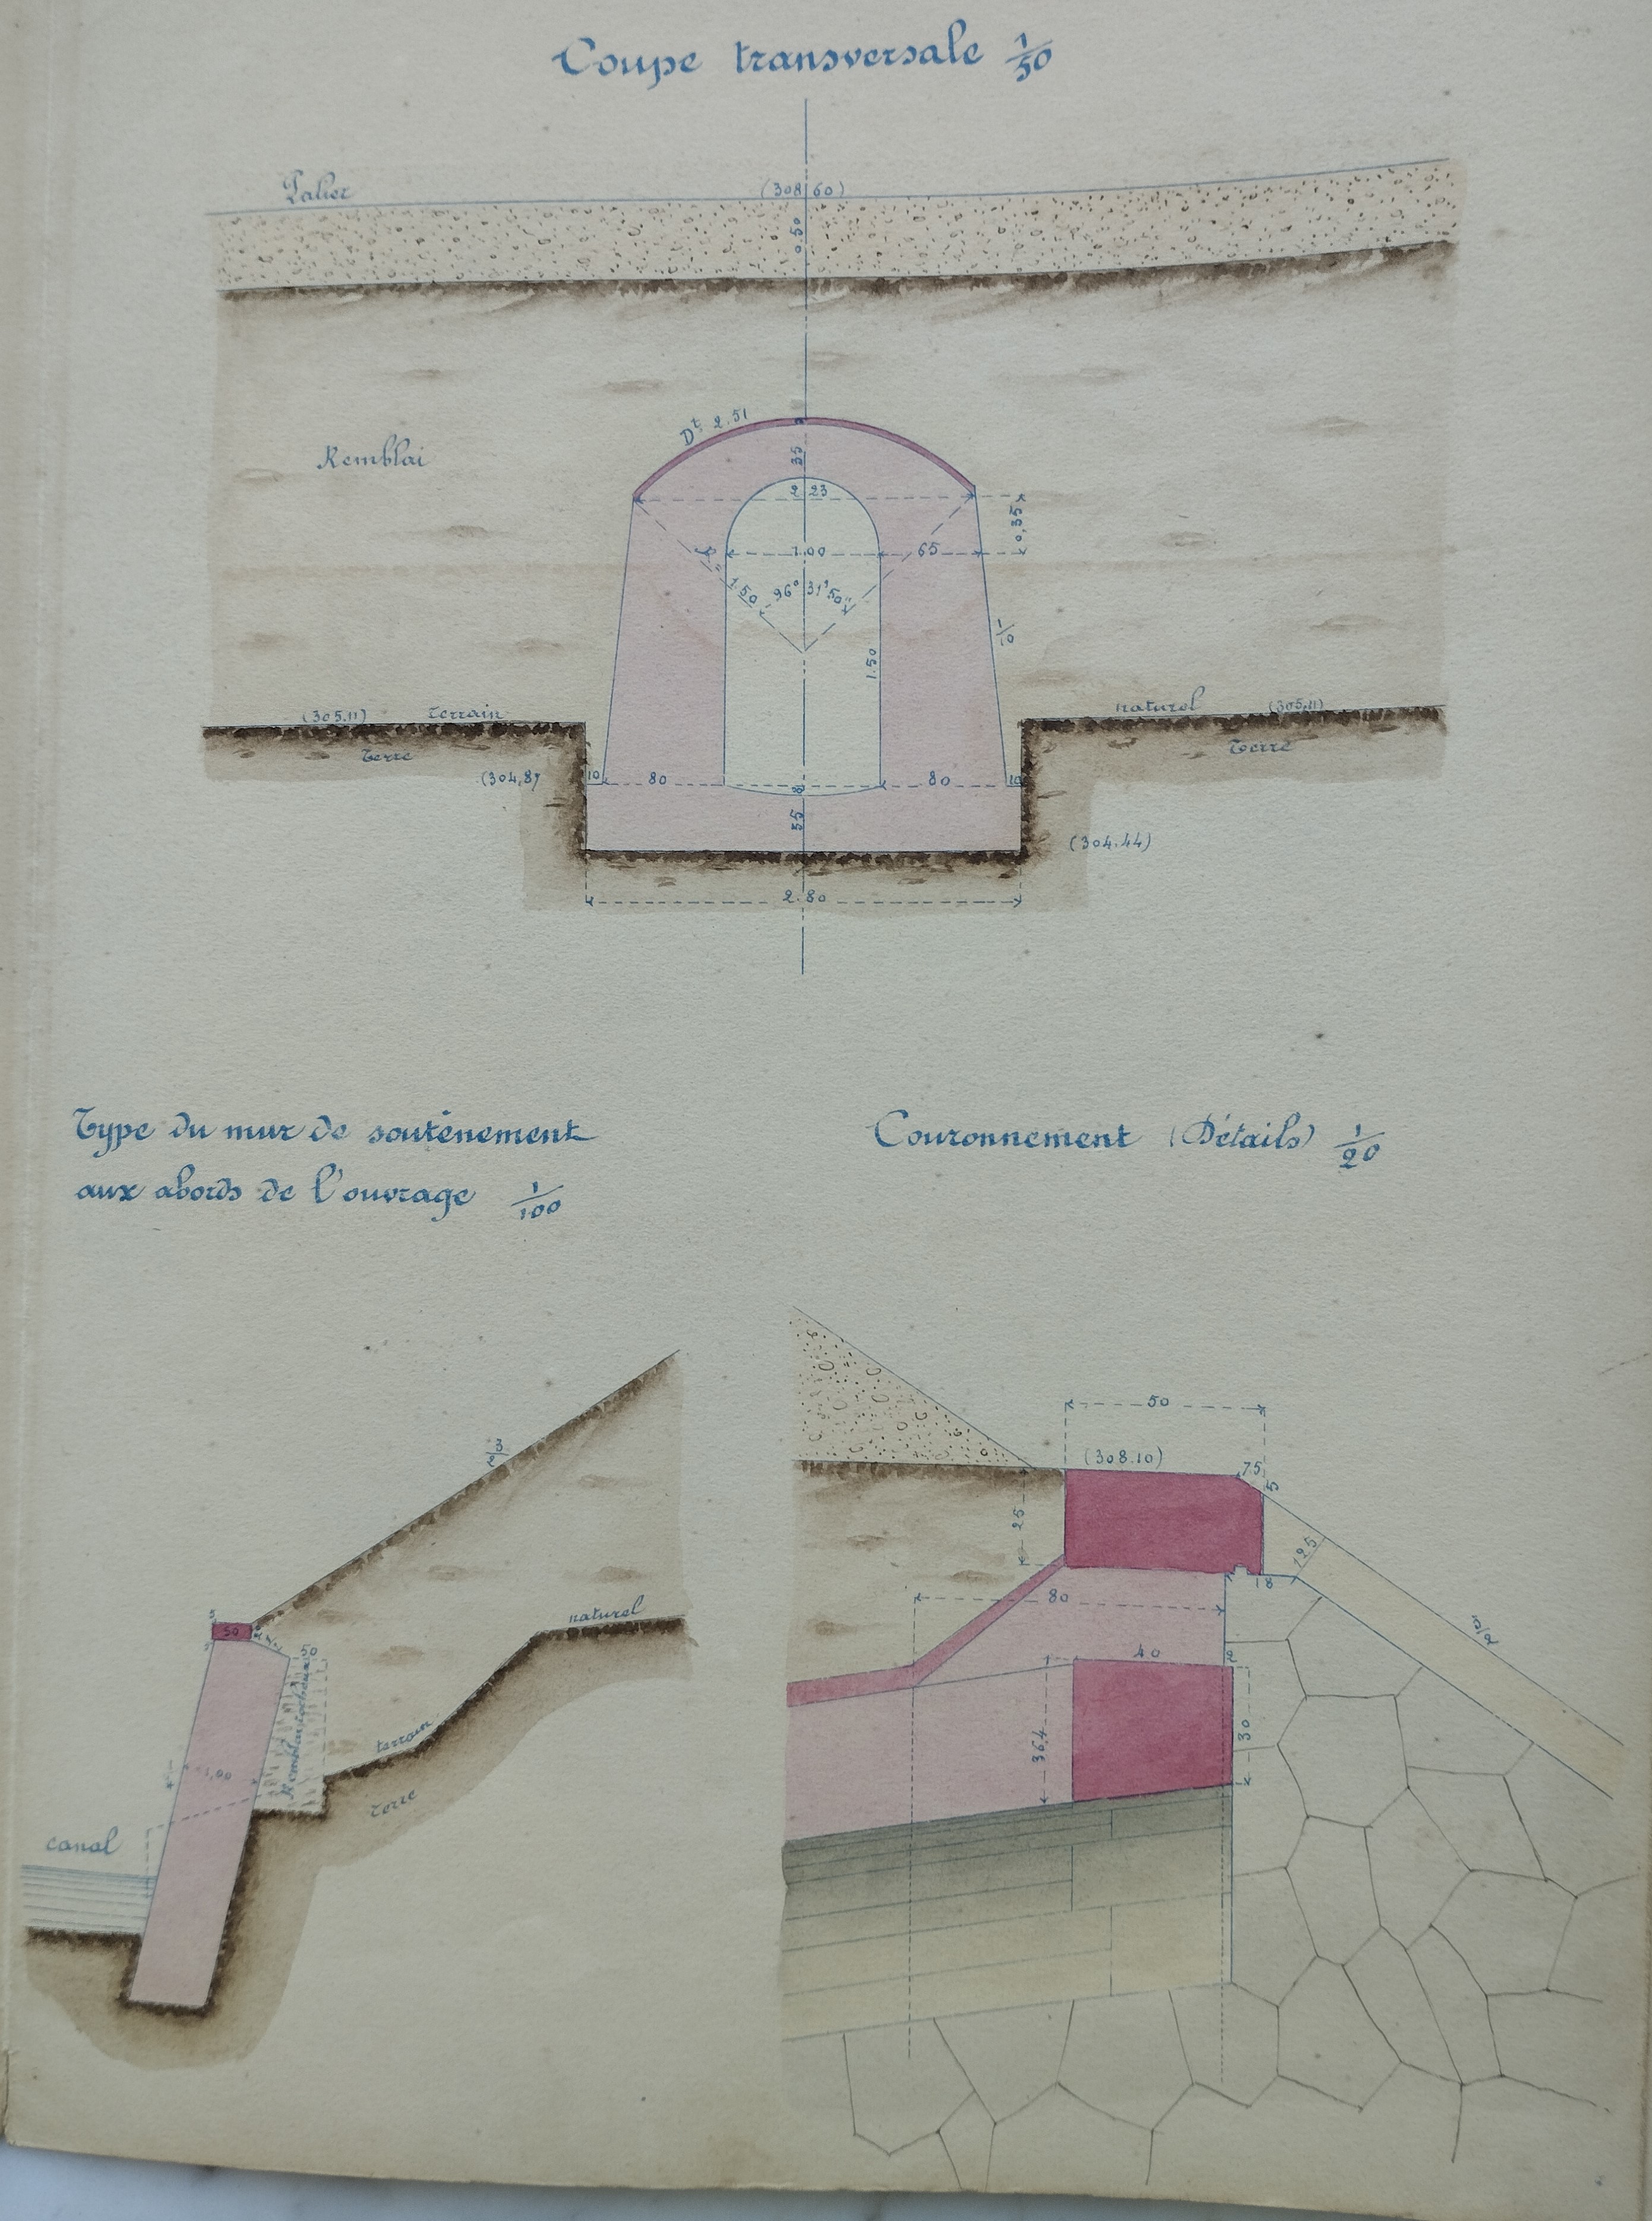 Coupe transversale 1/50
Palier
(308.60)
0.50
Dt 2.51
Remblai
35
2.23
0,35
1.00
65
1.50
96° 31' 50"
1/10
1.50
(305.11)
terrain
naturel
(305.11)
Terre
Terre
(304.87
10
80
8
80
10
35
(304.44)
2.80
Type du mur de soutènement
aux abords de l'ouvrage 1/100
Couronnement (Détails) 1/20
2/3
naturel
5
50
50
5
terrain
1,00
Terre
canal
50
(308.10)
7.5
5
25
125
8
80
2/3
40
2
36,4
30